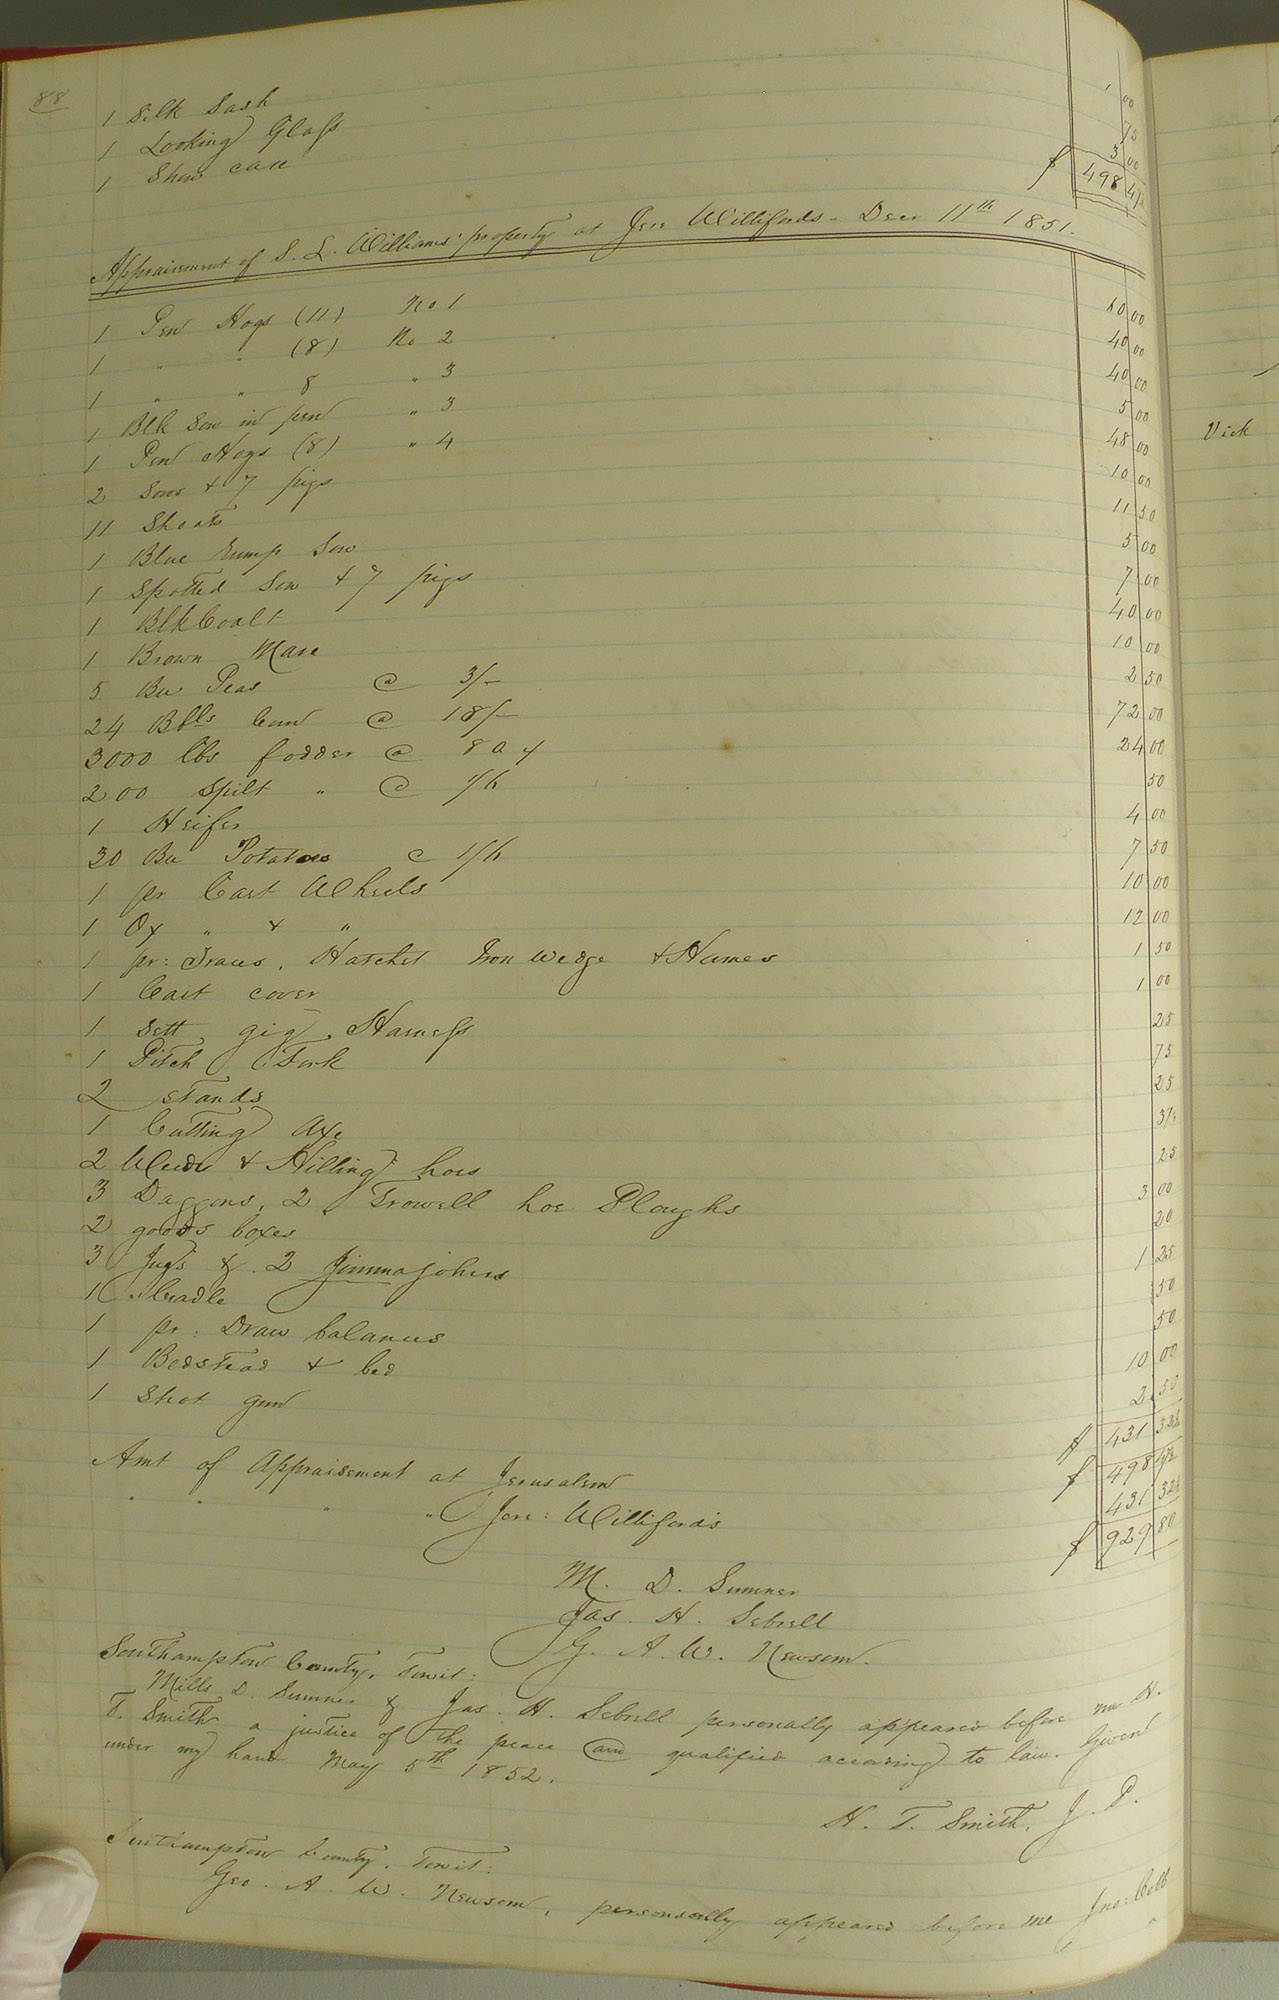 88
1 Silk Sash 1 00
1 Looking Glass 75
1 Show case 3 00
$ 498 47½
Appraisement of S. L. Williams' property at Jere Willifords - Decr 11th 1851.
1 Pen Hogs (11) No 1 60 00
1 " " (8) No 2 40 00
1 " " 8 " 3 40 00
1 Blk Sow in pen " 3 5 00
1 Pen Hogs (8) " 4 48 00
2 Sows & 7 pigs 10 00
11 Shoats 11 50
1 Blue rump Sow 5 00
1 Spotted Sow & 7 pigs 7 00
1 Blk Coalt 40 00
1 Brown Mare 10 00
5 Bu Peas @ 3/- 2 50
24 Bbls Corn @ 18/- 72 00
3000 lbs fodder @ 80 24 00
200 Spilt " @ 1/6 50
1 Heifer 4 00
30 Bu Potatoes @ 1/6 7 50
1 pr Cart Wheels 10 00
1 Ox " & " 12 00
1 pr: Traces, Hatchet Iron wedge & Hames 1 50
1 Cart cover 1 00
1 Sett gig Harness 25
1 Pitch Fork 75
2 Stands 25
1 Cutting Axe 37½
2 Weeds & Hilling hoes 25
3 Daggons, 2 Trowell hoe Ploughs 3 00
2 goods boxes 20
3 Jugs & 2 Jimmajohns 1 25
1 Cradle 50
1 pr: Draw balances 50
1 Bedstead & bed 10 00
1 Shot gun 2 50
$ 431 32½
Amt of Appraisement at Jerusalem $ 498 47½
" " " " Jere: Williford's 431 32½
$ 929 80
M. D. Sumner
Jas. H. Sebrell
G. A. W. Newsom.
Southampton County, Towit:
Mills D. Sumner & Jas. H. Sebrell personally appeared before me H.
T. Smith a justice of the peace and qualified according to law. Given
under my hand May 5th 1852.
H. T. Smith, J. P.
Southampton County, Towit:
Geo. A. W. Newsom, personally appeared before me Jno: Cobb
Vick